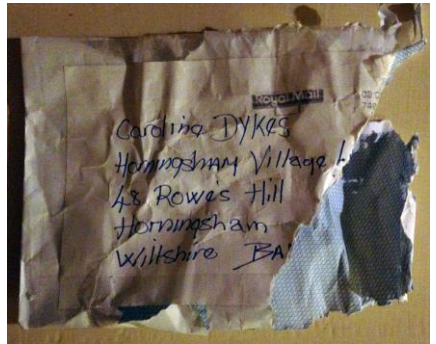 Royal Mail
Caroline DYKES
Horningsham Village
48 Rowes Hill
Horningsham
Wiltshire BA